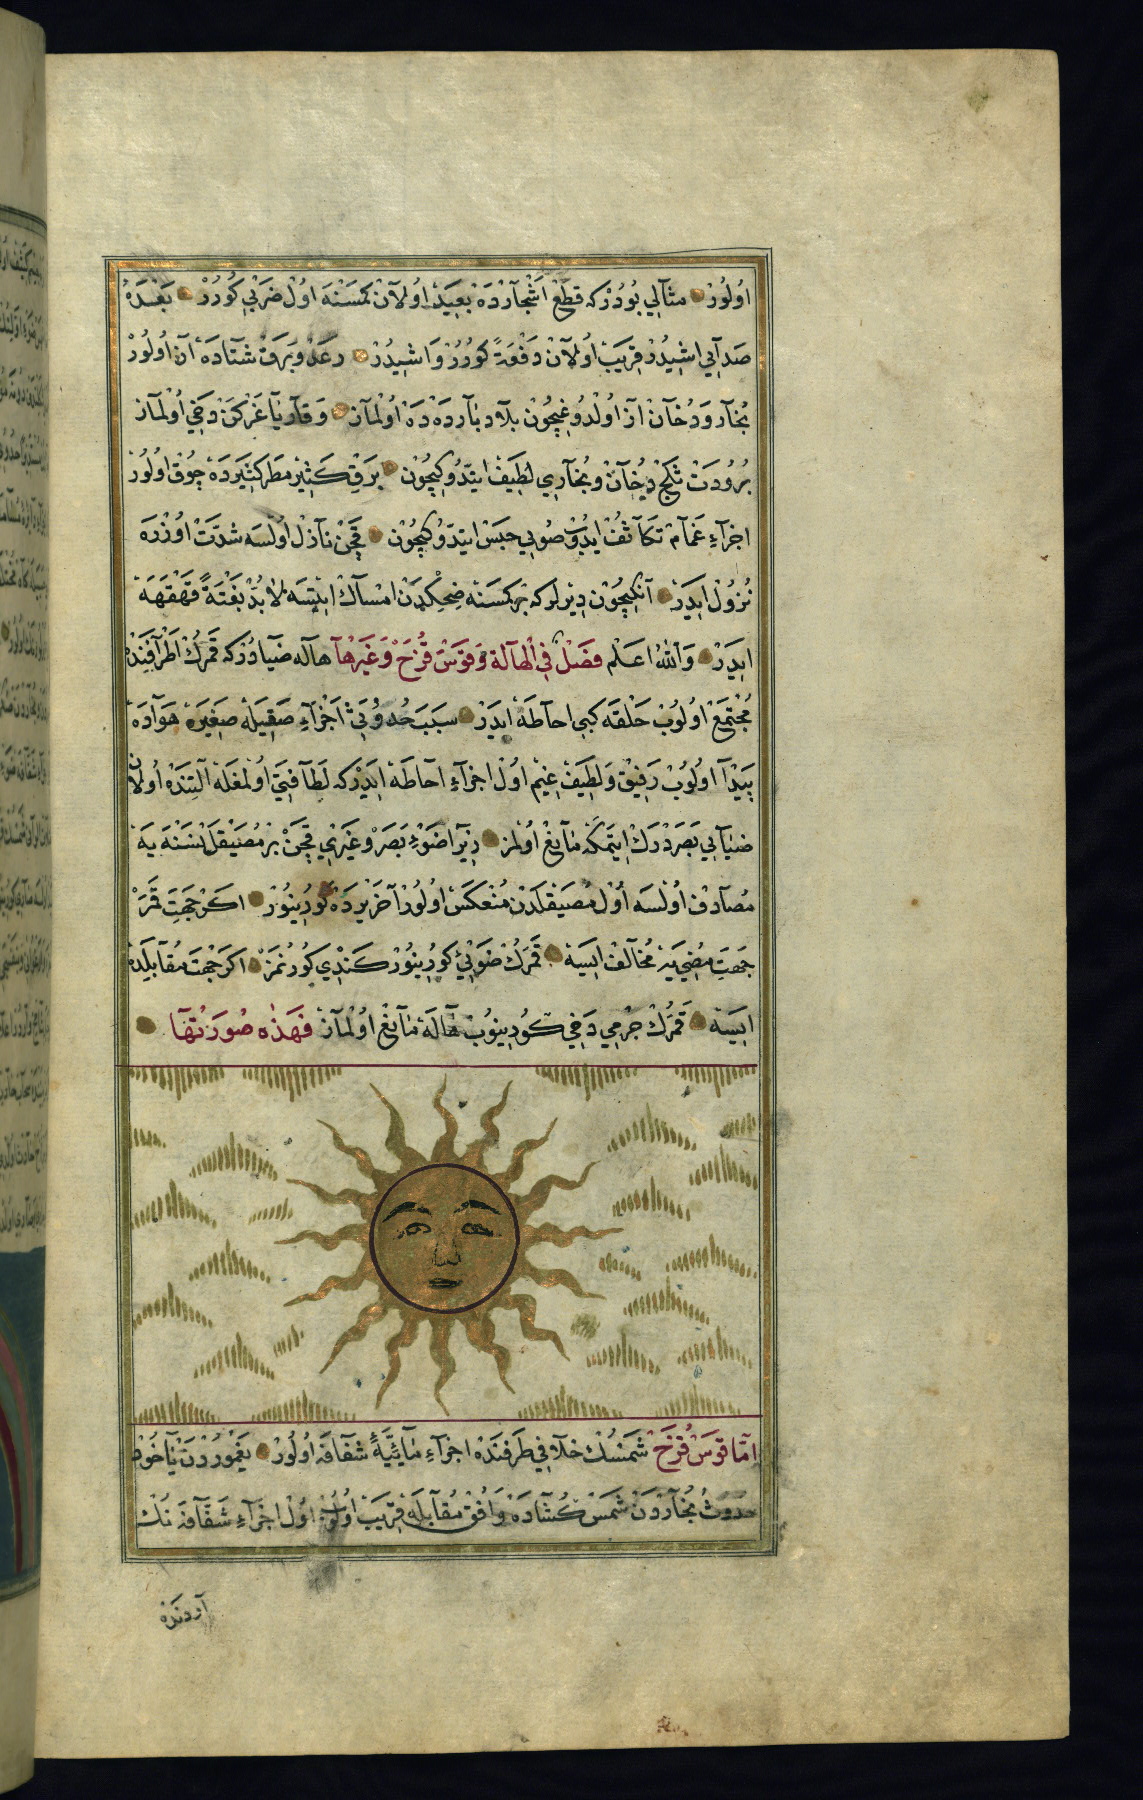 اولور مثالي بودركه قطع اشجارده بعيد اولان كمسنه اول ضربي كورر بعده
صدايي اشيدر قريب اولان دفعة كورر و اشيدر رعد وبرق شتاده آز اولور
بخار و دخان از اولدوغيچون بلاد بارده ده اولماز وقار ياغركن دخي اولماز
برودت ثلج دخان و بخاري لطيف ايتدوكيچون برق كثير مطر كثيرده چوق اولور
اجزاء غمام تكاثف ايدوب صويي حبس ايتدوكيچون قچن نازل اولسه شدت اوزره
نزول ايدر آنكيچون ديرلر كه بر كسنه ضحكدن امساك ايتسه لابد بغتة قهقهه
ايدر والله اعلم فصل في الهالة وقوس قزح وغيرها هاله ضيادر كه قمرك اطرافنده
مجتمع اولوب حلقه كبي احاطه ايدر سبب حدوثي اجزاء صقيله صغيره هواده
پيدا اولوب رقيق و لطيف غيم اول اجزاء احاطه ايدر كه لطافتي اولمغله آلتنده اولان
ضيايي بصر درك ايتمكه مانع اولمز زيرا ضوء بصر وغيري قچن بر مصيقل نسنه يه
مصادف اولسه اول مصيقلدن منعكس اولور آخر يرده كورينور اكر جهت قمر
جهت مضي يه مخالف ايسه قمرك ضوئي كورينور كندي كورنمز اكر جهت مقابلده
ايسه قمرك جرمي دخي كورينوب هاله مانع اولماز فهذه صورتها
اما قوس قزح شمسك خلافي طرفنده اجزاء مائية شفافه اولور يغموردن ياخود
حدوث بخاردن شمس كشاده و افق مقابله قريب اولوب اول اجزاء شفافه نك
آردنده